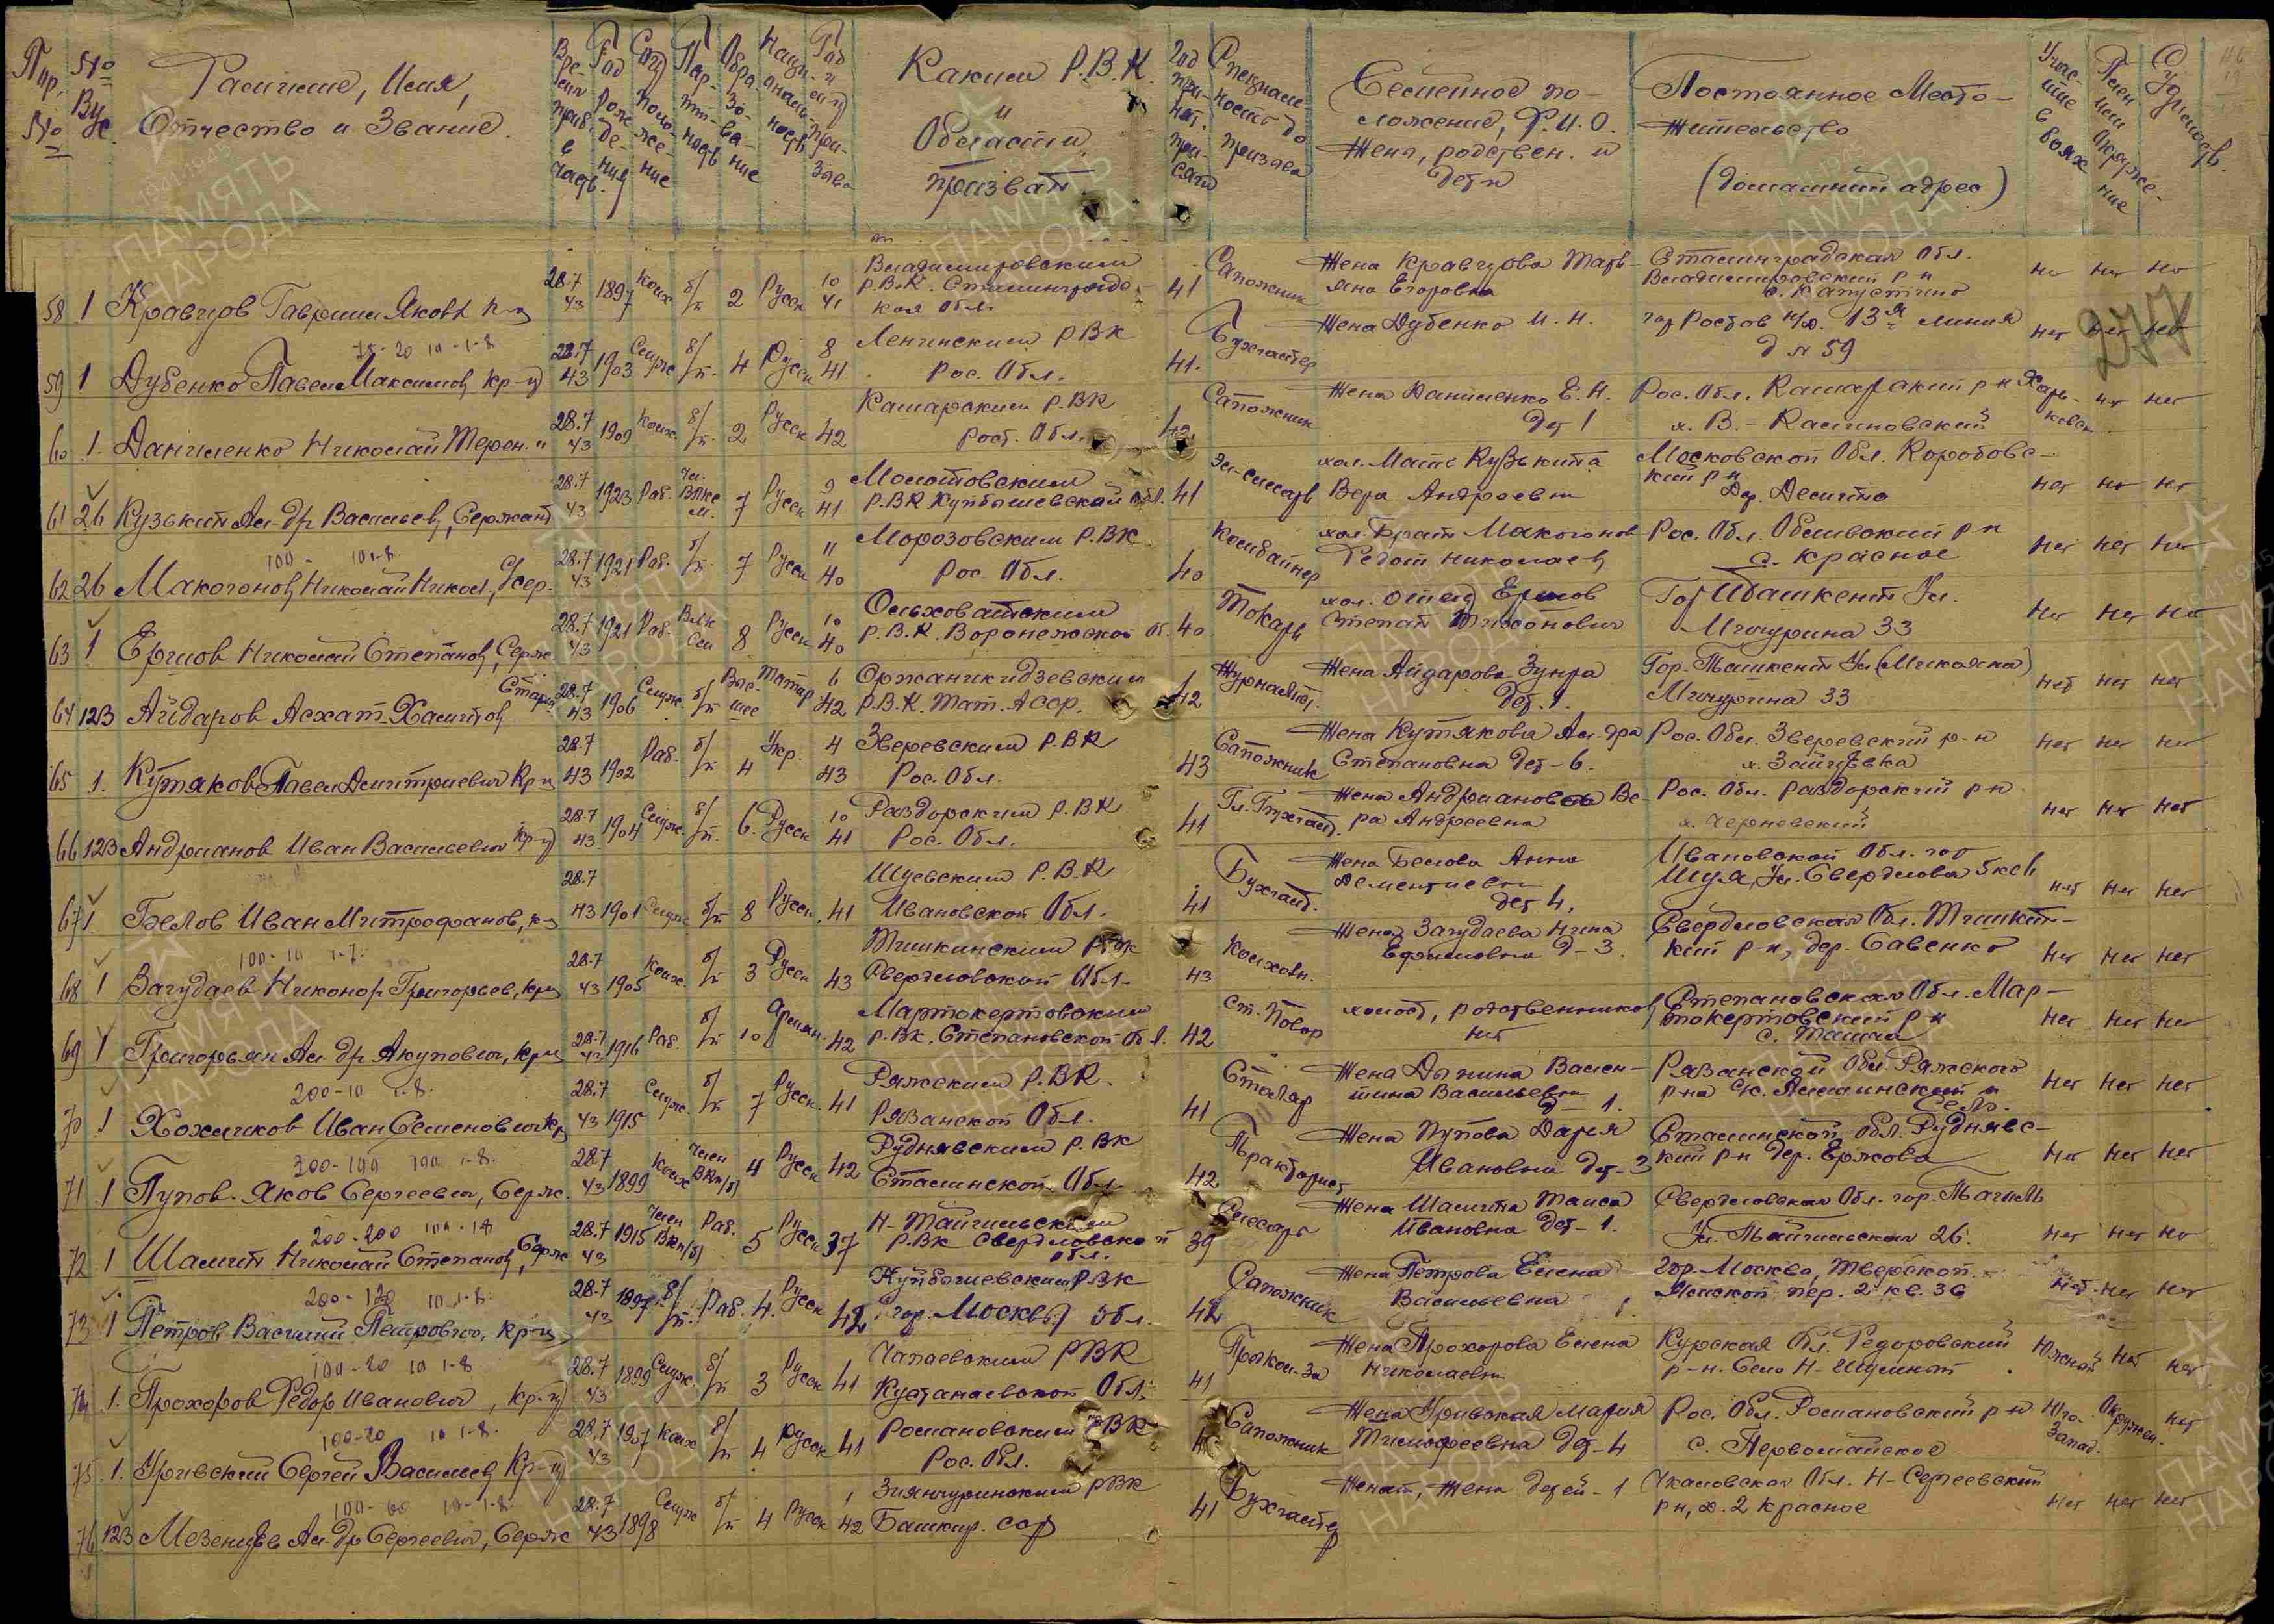 Пор. №
№ Вус.
Фамилие, Имя,
Отчество и Звание.
Время приб. в часть.
Год рождения
Соц. положение
Партийность
Образование
Национальность
Год и м-ц призыва
Каким Р.В.К.
и
Области
призван
Год принят. присяги
Специальность до призыва
Семейное положение, Ф.И.О.
Жены, родствен. и
дети
Постоянное Место-
жительство
(домашний адрес)
Участие в боях
Плен или окружение
Судимость.
277
58 1 Кравцов Гавриил Яковл кр-ц 28.7 43 1897 Колх б/п 2 Русск 10 41
Владимировским
Р.В.К. Сталинградс-
кая Обл.
41 Сапожник Жена Кравцова Тать-
яна Егоровна
Сталинградская Обл.
Владимировский р-н
с. Капустино
нет нет
75-20 10-1-8
59 1 Дубенко Павел Максимов, кр-ц 28.7 43 1903 Служ б/п. 4 Русск 8 41.
Ленинским РВК
Рос. Обл.
41. Бухгалтер Жена Дубенко И. Н.
гор Ростов н/Д. 13я линия
д № 59
нет нет нет
60 1. Даниленко Николай Терен. " 28.7 43 1909 Колх. б/п. 2 Русск 42
Кашарским Р.ВК
Рост. Обл.
42 Сапожник Жена Даниленко Е. Н.
дет 1
Рос. Обл. Кашарский р-н
х. В.-Калиновский
Харь-
ковск.
нет нет
61 26 Кузькин Ал-др Васильев, Сержант 28.7 43 1923 Раб. Чл. ВЛКСМ. 7 Русск 9 41
Молотовским
Р.ВК Куйбышевской обл.
41 Эл-слесарь хол. Мать Кузькина
Вера Андреевн
Московской Обл. Коробовс-
кий р-н
Дер. Десятно
нет нет нет
100- 10 1-8.
62 26 Макогонов, Николай Никол., Сер. 28.7 43 1921 Раб. б/п. 7 Русск 11 40
Морозовским Р.ВК
Рос. Обл.
40 Комбайнер хол. Брат Макогонов
Федот Николаев
Рос. Обл. Обливский р-н
с. Красное
нет нет нет
63 1 Ершов Николай Степанов, Серж 28.7 43 1921 Раб. ВЛКСМ 8 Русск 10 40
Ольховатским
Р.В.К. Воронежской об.
40 Токарь хол. Отец Ершов
Степан Тихонович
Гор Ташкент Ул.
Мичурина 33
нет нет нет
64 123 Айдаров Асхат Хамитов Старш 28.7 43 1906 Служ. б/п Высшее Татар 6 42
Орджаникидзевским
Р.В.К. Тат. АССР.
42 Журналист. Жена Айдарова Зухра
дет. 1.
Гор. Ташкент Ул (Микояна)
Мичурина 33
нет нет нет
65 1. Кутяков Павел Дмитриевич Кр-ц 28.7 43 1902 Раб. б/п 4 Укр. 4 43
Зверевским Р.ВК
Рос. Обл.
43 Сапожник Жена Кутякова Ал-дра
Степановна дет-6.
Рос. Обл. Зверевский р-н
х. Зайцевка
нет нет нет
66 123 Андрианов Иван Васильевич кр-ц 28.7 43 1904 Служ. б/п. 6. Русск 10 41
Раздорским Р.ВК
Рос. Обл.
41 Гл. Бухгалт. Жена Андрианова Ве-
ра Андреевна
Рос. Обл. Раздорский р-н
х. Черновский
нет нет нет
67 1 Белов Иван Митрофанов, кр 28.7 43 1901 Служ б/п 8 Русск. 41
Шуевским Р.В.К
Ивановской Обл.
41 Бухгалт. Жена Белова Анна
Дементиевн
дет 4.
Ивановской Обл. гор
Шуя, Ул. Свердлова 5 кв 1
нет нет нет
100-10 1-7.
68 1 Загудаев Никонор Григорьев, кр-ц 28.7 43 1905 Колх. б/п 3 Русск 43
Тишкинским РВК
Свердловской Обл-
43 Колхозн. Жена Загудаева Нина
Ефимовна Д-3.
Свердловская Обл. Тишкин-
кий р-н, дер. Савенко
нет нет нет
69 1 Григорьян Ал-др Акупович, кр-ц 28.7 43 1916 Раб. б/п 10 Армян. 42
Мартокертовским
Р.ВК. Степановской Обл.
42 Ст. Повор холост, родственников,
нет
Степановская Обл. Мар-
токертовский р-н
с. Талиш
нет нет нет
200-10 1-8.
70 1 Хохликов Иван Семенович кр 28.7 43 1915 Служ. б/п 7 Русск. 41
Ряжским Р.ВК.
Рязанской Обл.
41 Столяр Жена Дынина Вален-
тина Васильевн
д-1.
Рязанской Обл. Ряжского
р-на
нет нет нет
200-100 100 1-8.
71 1 Пупов. Яков Сергеевич, Серж. 28.7 43 1899 Колх Член ВКП(б) 4 Русск 42
Руднявским Р.ВК
Сталинской Обл.
42 Тракторист Жена Пупова Дарья
Ивановна дет-3
Сталинской обл. Руднявс-
кий р-н дер. Ержова
нет нет нет
200-200 100-18
72 1 Шалгин Николай Степанов, Серж 28.7 43 1915 Член ВКП(б) Раб. 5 Русск 37
Н-Тайгильским
Р.ВК Свердловской
обл.
39 Слесарь Жена Шалгина Таиса
Ивановна дет-1.
Свердловская Обл. гор. Тагиль
Ул. Тайгильская 26.
нет нет нет
200-120 10 1-8.
73 1 Петров Василий Петрович, кр-ц 28.7 43 1897 б/п. Раб. 4. Русск 42
Куйбышевским РВК
гор. Москвы обл.
42 Сапожник Жена Петрова Елена
Васильевна
Гор. Москва, Тверской
Ямской пер. 2 кв. 36
нет. нет нет
100-20 10 1-8
74 1. Прохоров Федор Иванович, кр-ц 28.7 43 1899 Служ. б/п 3 Русск 41
Чапаевским РВК
Кустанаевской Обл.
41 Жена Прохорова Елена
Николаевн
Курская Обл. Федоровский
р-н. Село Н-Шумное
Южной нет нет
100-20 10 1-8.
75 1. Уривский Сергей Васильев, Кр-ц 28.7 43 1907 Колх б/п 4 Русск 41
Романовским РВК
Рос. Обл.
41 Сапожник Жена Уривская Мария
Тимофеевна дет-4
Рос. Обл. Романовский р-н
с. Первомайское
Юго-
Запад.
Окружен. нет
100-60 10-1-8-
76 123 Мезенцев Ал-др Сергеевич, Серж 28.7 43 1898 Служ б/п 4 Русск 1 42
Зиянчуринским РВК
Башкир. сср
41 Бухгалтер Женат, Жена детей-1
Чкаловская Обл. Н-Сергеевский
р-н, д. 2 Красное
нет нет нет
ПАМЯТЬ
НАРОДА